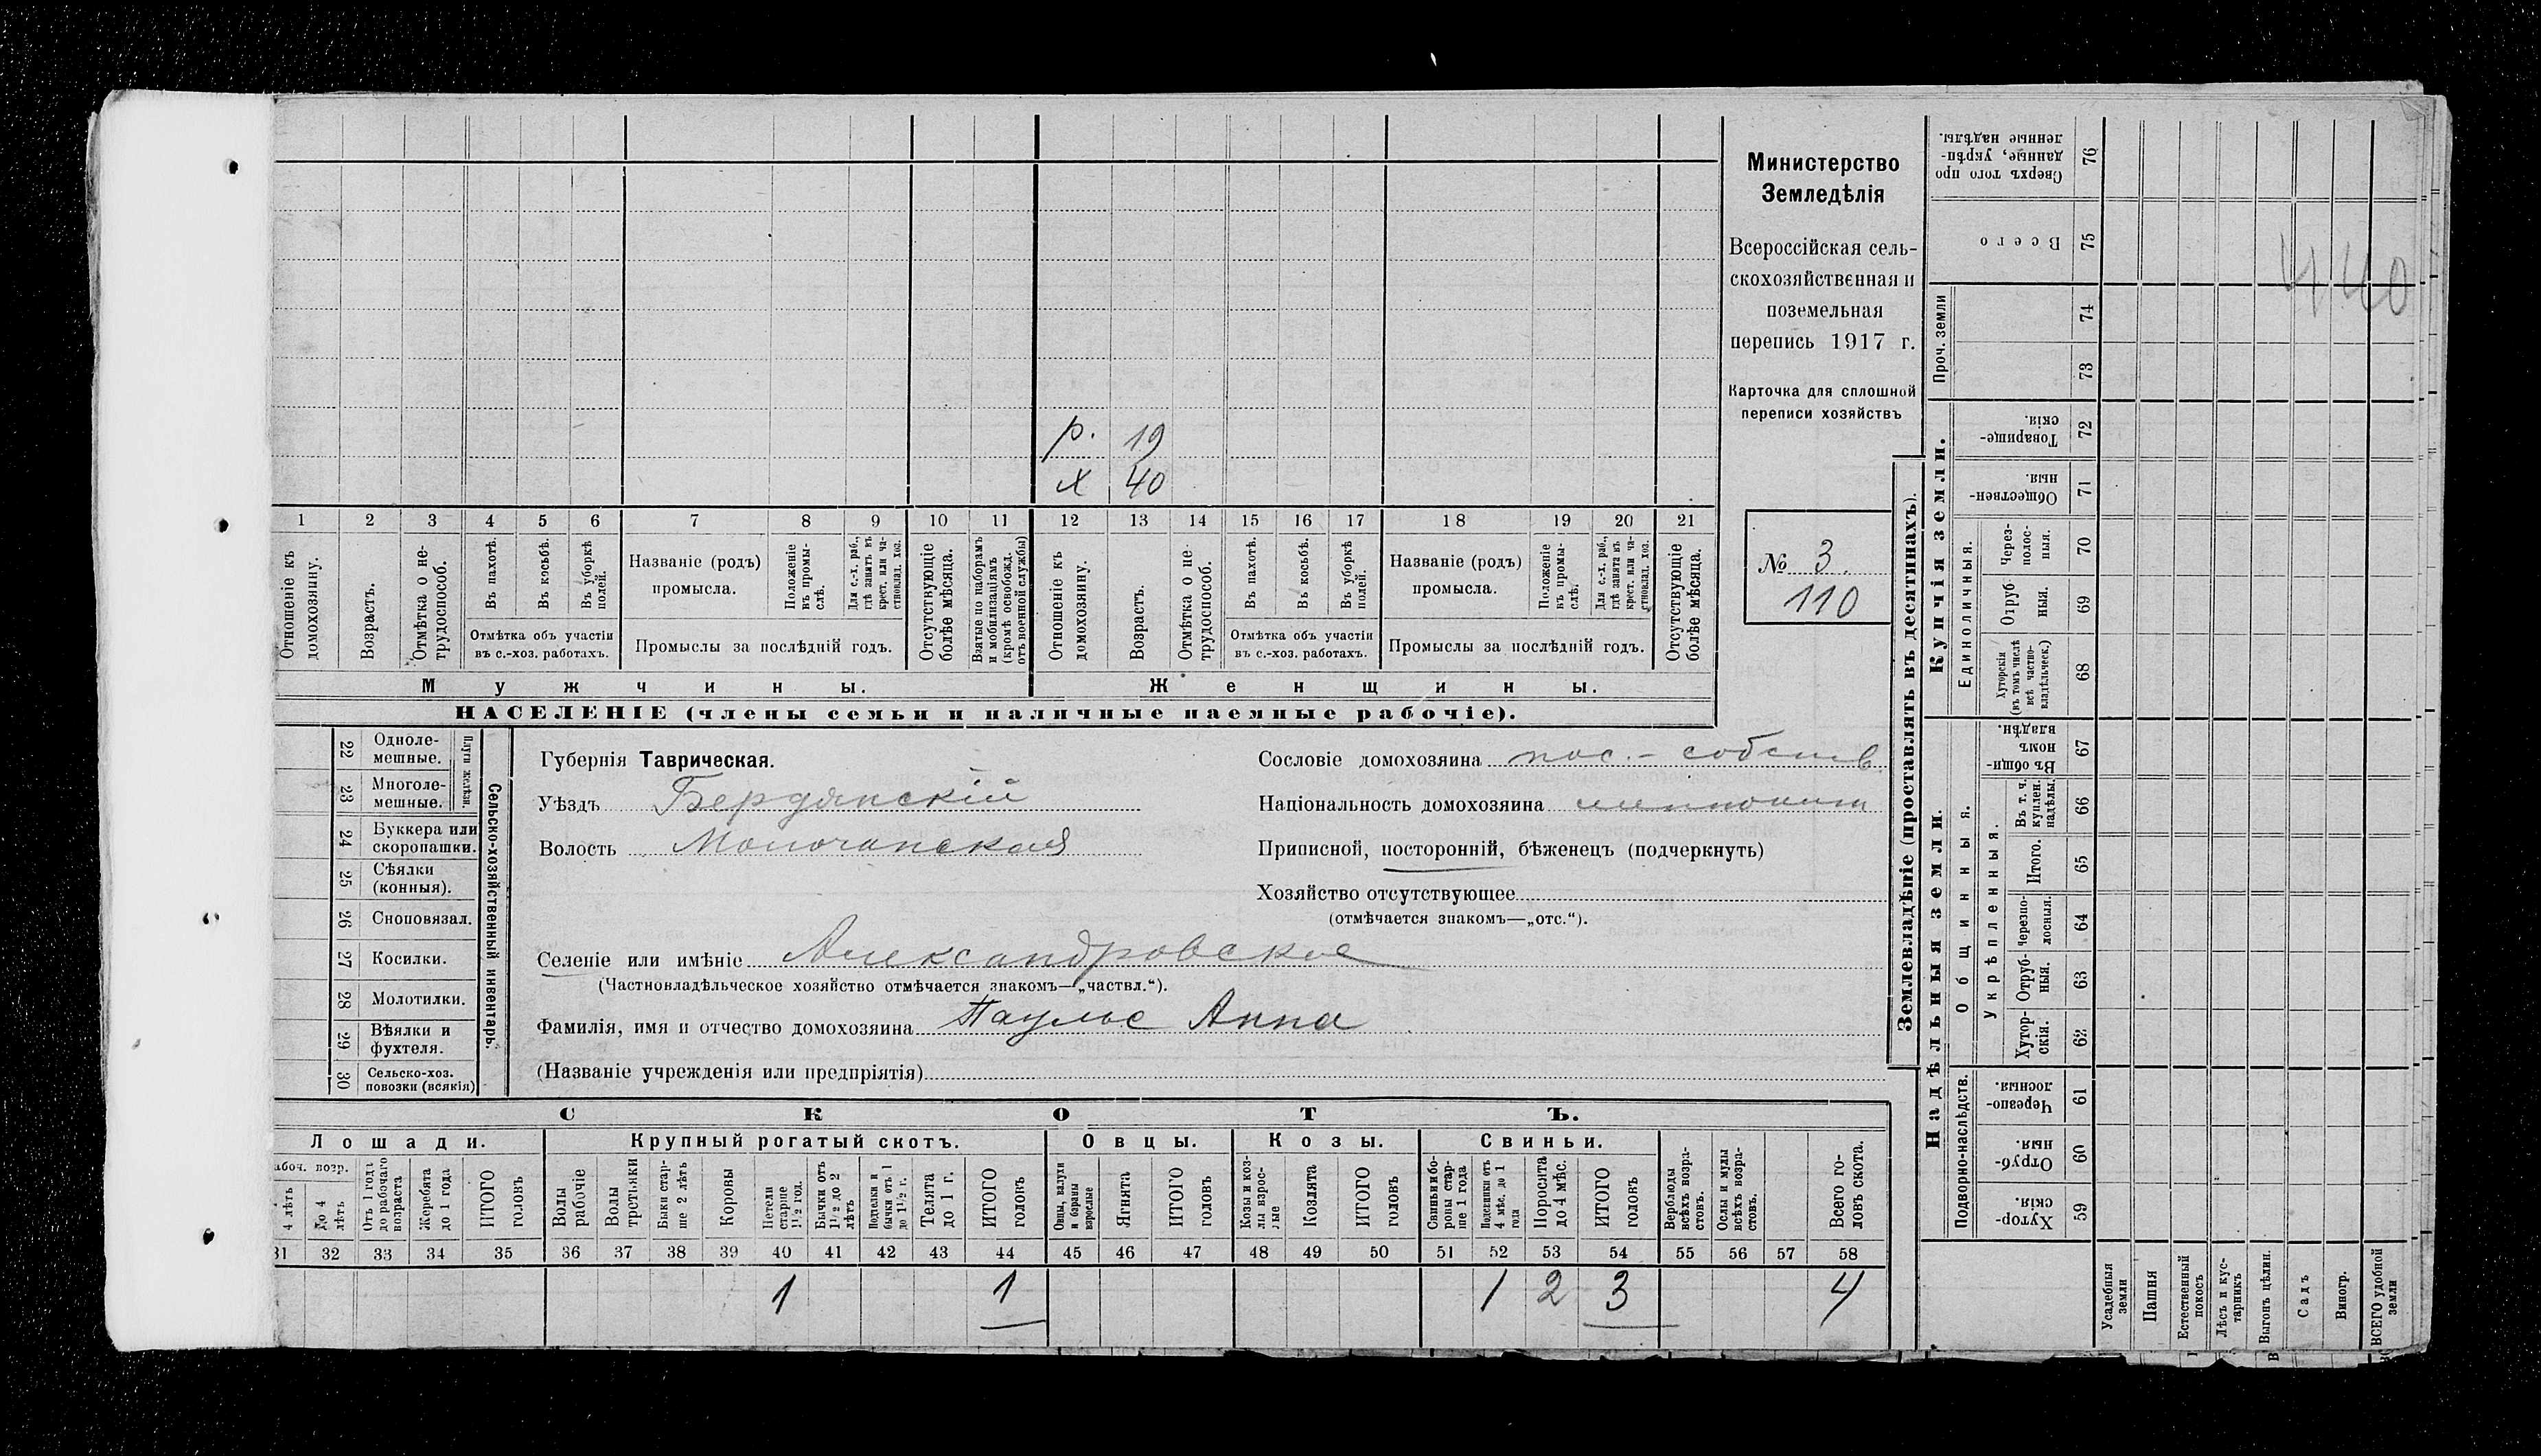 Министерство
Земледѣлія
Всероссійская сель-
скохозяйственная и
поземельная
перепись 1917 г.
Карточка для сплошной
переписи хозяйствъ
№ 3.
110
440
р. 19
х 40
1 2 3 4 5 6 7 8 9 10 11 12 13 14 15 16 17 18 19 20 21
Отношеніе къ домохозяину.
Возрастъ.
Отмѣтка о не-
трудоспособ.
Въ пахотѣ.
Въ косьбѣ.
Въ уборкѣ
полей.
Отмѣтка объ участіи
въ с.-хоз. работахъ.
Названіе (родъ)
промысла.
Положеніе
въ промы-
слѣ.
Для с.-х. раб.,
гдѣ занятъ въ
крест. или ча-
стновлад. хоз.
Промыслы за послѣдній годъ.
Отсутствующіе
болѣе мѣсяца.
Взятые по наборамъ
и мобилизаціямъ
(кромѣ освобожд.
отъ военной службы)
Отношеніе къ
домохозяину.
Возрастъ.
Отмѣтка о не-
трудоспособ.
Въ пахотѣ.
Въ косьбѣ.
Въ уборкѣ
полей.
Отмѣтка объ участіи
въ с.-хоз. работахъ.
Названіе (родъ)
промысла.
Положеніе
въ промы-
слѣ.
Для с.-х. раб.,
гдѣ занята въ
крест. или ча-
стновлад. хоз.
Промыслы за послѣдній годъ.
Отсутствующіе
болѣе мѣсяца.
Мужчины.
Женщины.
НАСЕЛЕНІЕ (члены семьи и наличные наемные рабочіе).
22 Одноле-
мешные.
23 Многоле-
мешные.
Плуги желѣзн.
24 Буккера или
скоропашки.
25 Сѣялки
(конныя).
26 Сноповязал.
27 Косилки.
28 Молотилки.
29 Вѣялки и
фухтеля.
30 Сельско-хоз.
повозки (всякія)
Сельско-хозяйственный инвентарь.
Губернія Таврическая.
Уѣздъ Бердянскій
Волость Молочанская
Сословіе домохозяина пос.-собств.
Національность домохозяина меннонит
Приписной, посторонній, бѣженецъ (подчеркнуть)
Хозяйство отсутствующее
(отмѣчается знакомъ—„отс.“).
Селеніе или имѣніе Александровское
(Частновладѣльческое хозяйство отмѣчается знакомъ—„частвл.“).
Фамилія, имя и отчество домохозяина Паульс Анна
(Названіе учрежденія или предпріятія)
СКОТЪ.
Лошади.
Крупный рогатый скотъ.
Овцы.
Козы.
Свиньи.
абоч. возр.
4 лѣтъ
до 4
лѣтъ
Отъ 1 года
до рабочаго
возраста
Жеребята
до 1 года
ИТОГО
головъ
Волы
рабочіе
Волы
третьяки
Быки стар-
ше 2 лѣтъ
Коровы
Нетели
старше
1½ год.
Бычки отъ
1½ до 2
лѣтъ
Подтелки и
бычки отъ 1
до 1½ г.
Телята
до 1 г.
ИТОГО
головъ
Овцы, валухи
и бараны
взрослые
Ягнята
ИТОГО
головъ
Козы и коз-
лы взрос-
лые
Козлята
ИТОГО
головъ
Свиньи бо-
роны стар-
ше 1 года
Подсвинки отъ
4 мѣс. до 1
года
Поросята
до 4 мѣс.
ИТОГО
головъ
Верблюды
всѣхъ возра-
стовъ.
Ослы и мулы
всѣхъ возра-
стовъ.
Всего го-
ловъ скота.
31 32 33 34 35 36 37 38 39 40 41 42 43 44 45 46 47 48 49 50 51 52 53 54 55 56 57 58
1 1 1 2 3 4
Землевладѣніе (проставлять въ десятинахъ).
Надѣльныя земли.
Купчія земли.
Проч. земли
Подворно-наслѣдств.
Общинныя.
Укрѣпленныя.
Единоличныя.
Сверхъ того про
данные, укрѣп-
ленные надѣлы.
76
Всего
75
74
73
Товарище-
скія.
72
Обществен-
ныя.
71
Через-
полос-
ныя.
70
Отруб
ныя.
69
Хуторскія
(въ томъ числѣ
всѣ частно-
владѣльческ.)
68
Въ общи-
номъ
владѣн.
67
Въ т. ч.
куплен.
надѣлы.
66
Итого.
65
Черезпо-
лосныя.
64
Отруб-
ныя.
63
Хутор-
скія.
62
Черезпо-
лосныя.
61
Отруб-
ныя.
60
Хутор-
скія.
59
Усадебныя
земли
Пашня
Естественный
покосъ
Лѣсъ и кус-
тарникъ
Выгонъ цѣлин.
Садъ
Виногр.
ВСЕГО удобной
земли